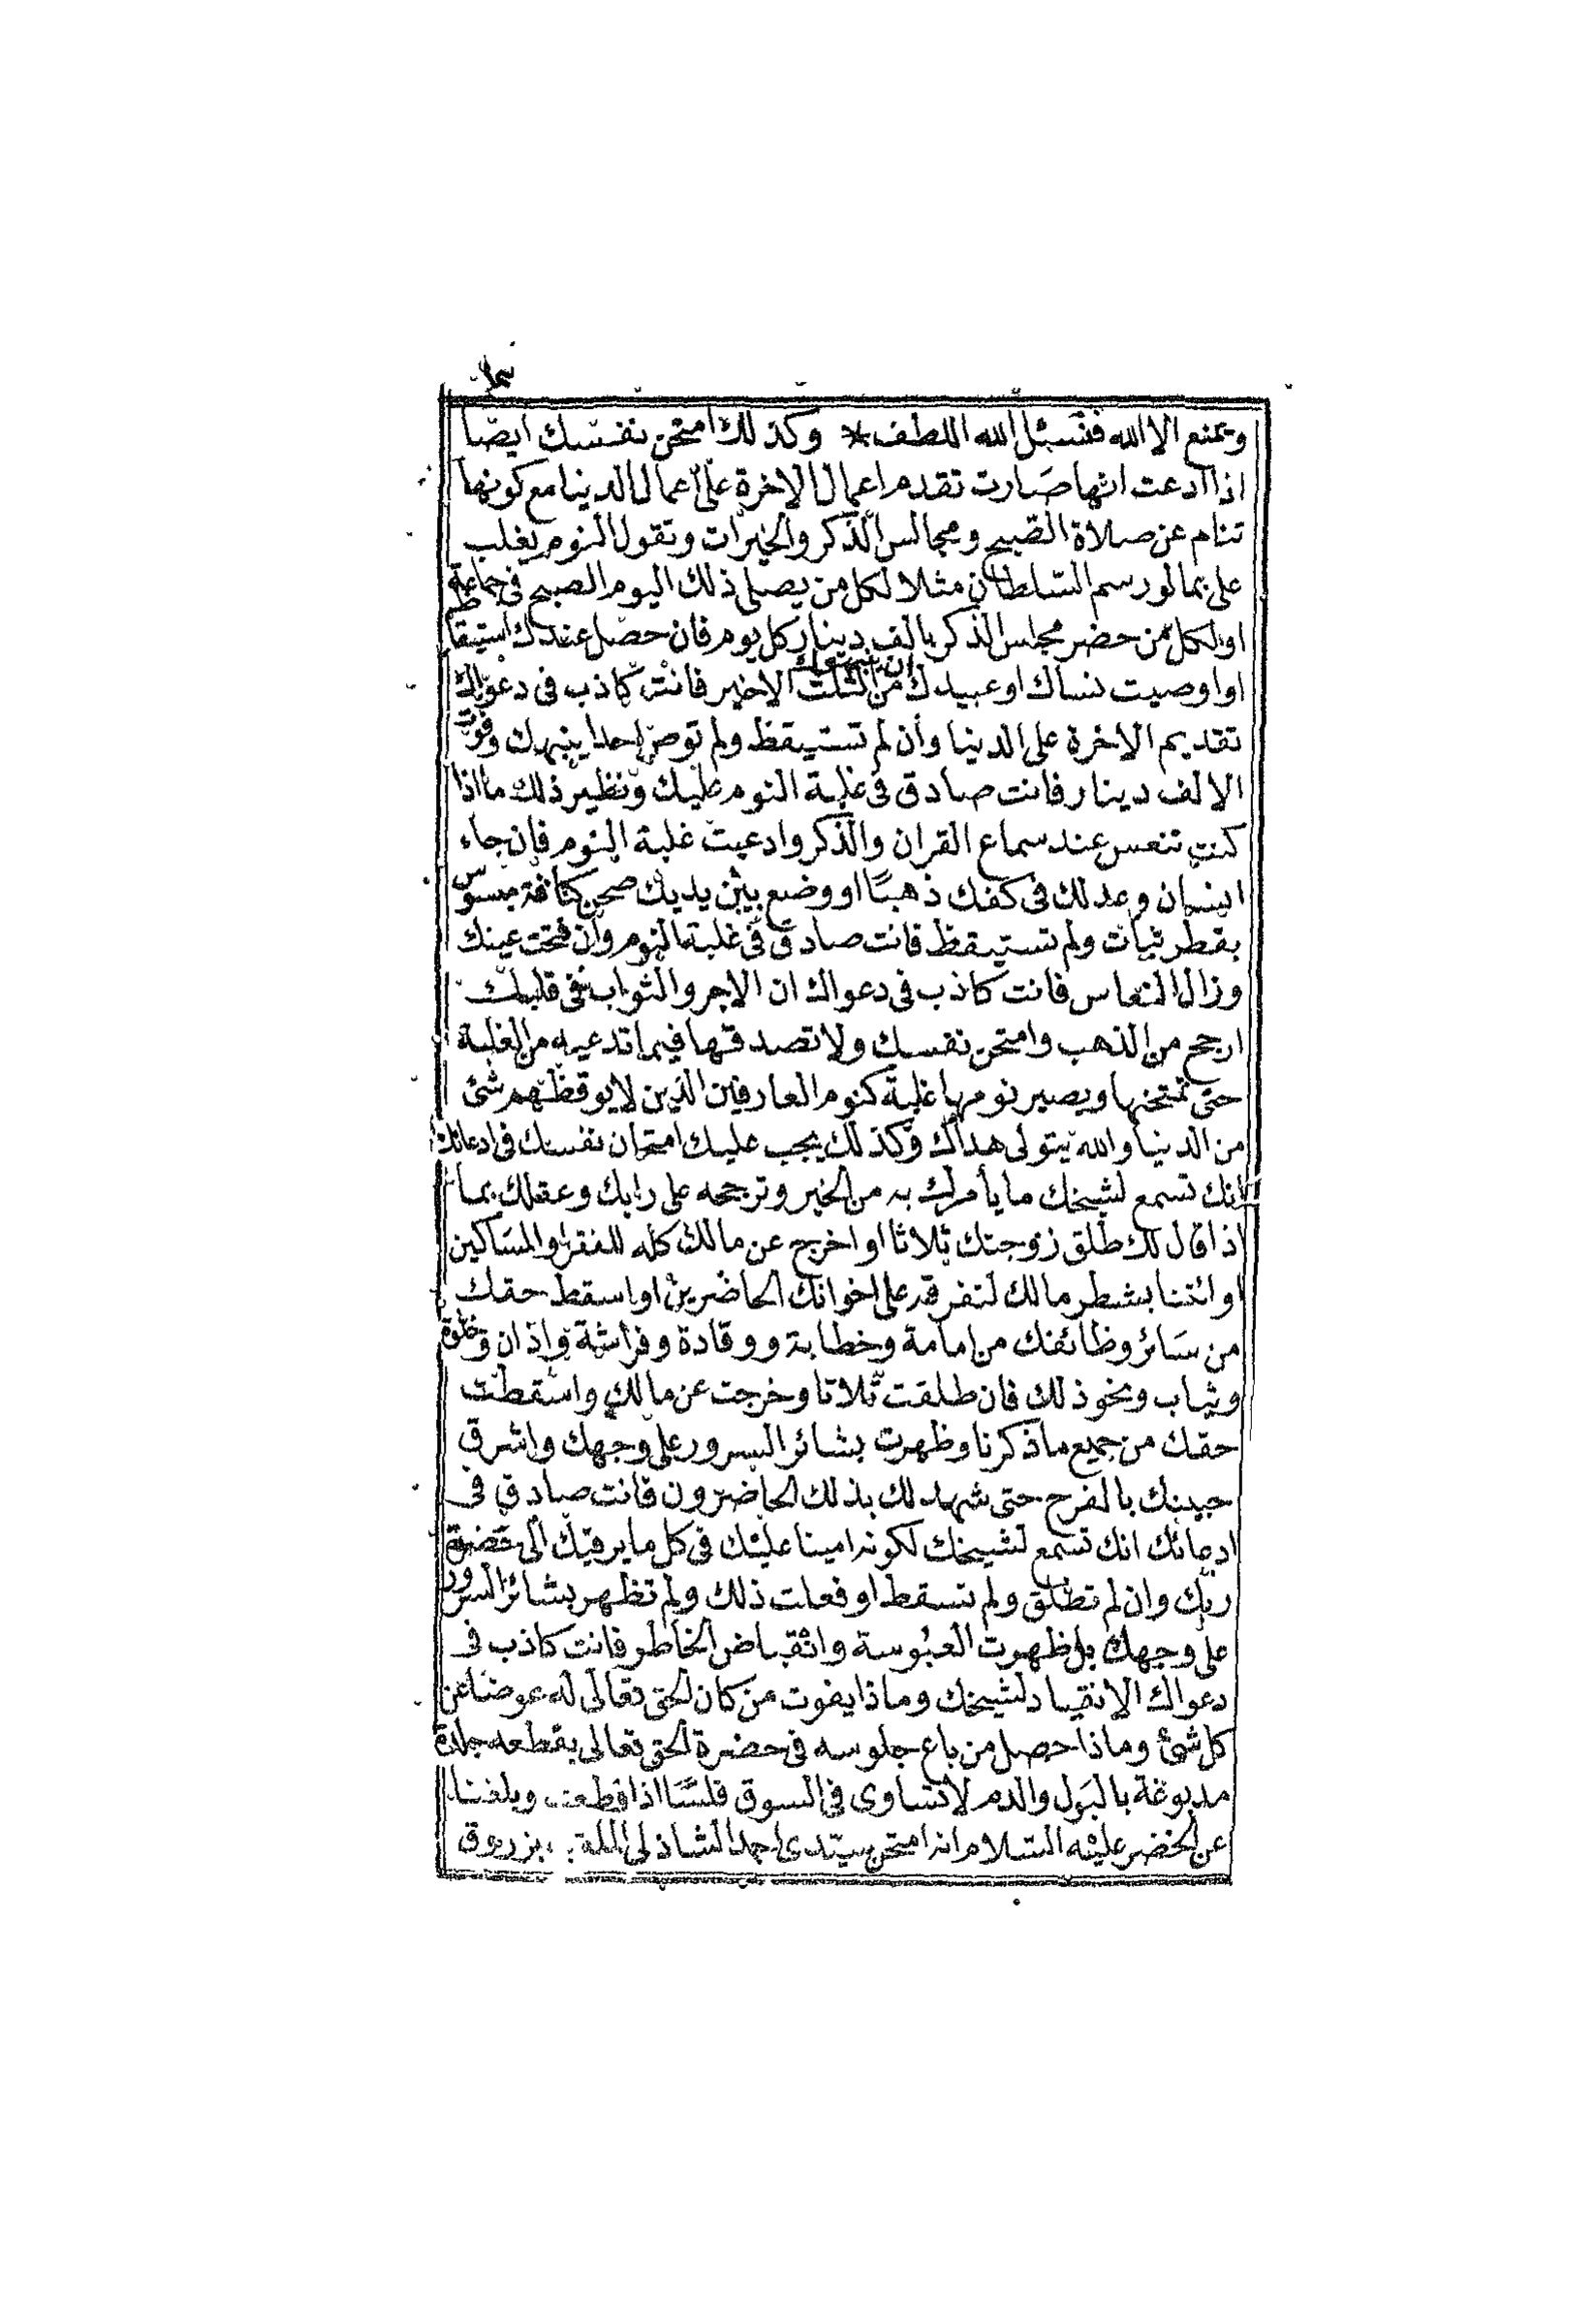 ويمنع الا الله فنسئل الله اللطف * وكذلك امتحن نفسك ايضا
اذا ادعت انها صارت تقدم اعمال الاخرة على اعمال الدنيا مع كونها
تنام عن صلاة الصبح ومجالس الذكر والخيرات وتقول النوم يغلب
على بما لو رسم السلطان مثلا لكل من يصلى ذلك اليوم الصبح فى جماعة
او لكل من حضر مجلس الذكر بالف دينار كل يوم فان حصل عندك استيقاظ
او اوصيت نساك او عبيدك ان ينبهوك من الثلث الاخير فانت كاذب فى دعواك
تقديم الاخرة على الدنيا وان لم تستيقظ ولم توص احدا ينبهك وفوت
الالف دينار فانت صادق فى غلبة النوم عليك ونظير ذلك ما اذا
كنت تنعس عند سماع القران والذكر وادعيت غلبة النوم فان جاء
انسان وعد لك فى كفك ذهبا او وضع بين يديك صحن كنافة مبسوس
بقطر نبات ولم تستيقظ فانت صادق فى غلبة النوم وان فتحت عينك
وزال النعاس فانت كاذب فى دعواك ان الاجر والثواب فى قلبك
ارجح من الذهب وامتحن نفسك ولا تصدقها فيما تدعيه من الغلبة
حتى تمتحنها ويصير نومها غلبة كنوم العارفين الذين لا يوقظهم شئ
من الدنيا والله يتولى هداك وكذلك يجب عليك امتحان نفسك فى ادعائك
انك تسمع لشيخك ما يأمرك به من الخير وترجحه على رايك وعقلك بما
اذا قال لك طلق زوجتك ثلاثا او اخرج عن مالك كله للفقرا والمساكين
او ائتنا بشطر مالك لنفرقه على اخوانك الحاضرين او اسقط حقك
من سائر وظائفك من امامة وخطابة ووقادة وفراشة واذان وخلوة
وثياب ونحو ذلك فان طلقت ثلاثا وخرجت عن مالك واسقطت
حقك من جميع ما ذكرنا وظهرت بشائر السرور على وجهك واشرق
جبينك بالفرح حتى شهد لك بذلك الحاضرون فانت صادق فى
ادعائك انك تسمع لشيخك لكونه امينا عليك فى كل ما يرقيك الى حضرة
ربك وان لم تطلق ولم تسقط او فعلت ذلك ولم تظهر بشائر السرور
على وجهك بل ظهرت العبوسة وانقباض الخاطر فانت كاذب فى
دعواك الانقياد لشيخك وماذا يفوت من كان الحق تعالى له عوضا عن
كل شئ وماذا حصل من باع جلوسه فى حضرة الحق تعالى بقطعه جلدة
مدبوغة بالبول والدم لا تساوى فى السوق فلسا اذا قطعت وبلغنا
عن الخضر عليه السلام انه امتحن سيدى احمد الشاذلى بزروق